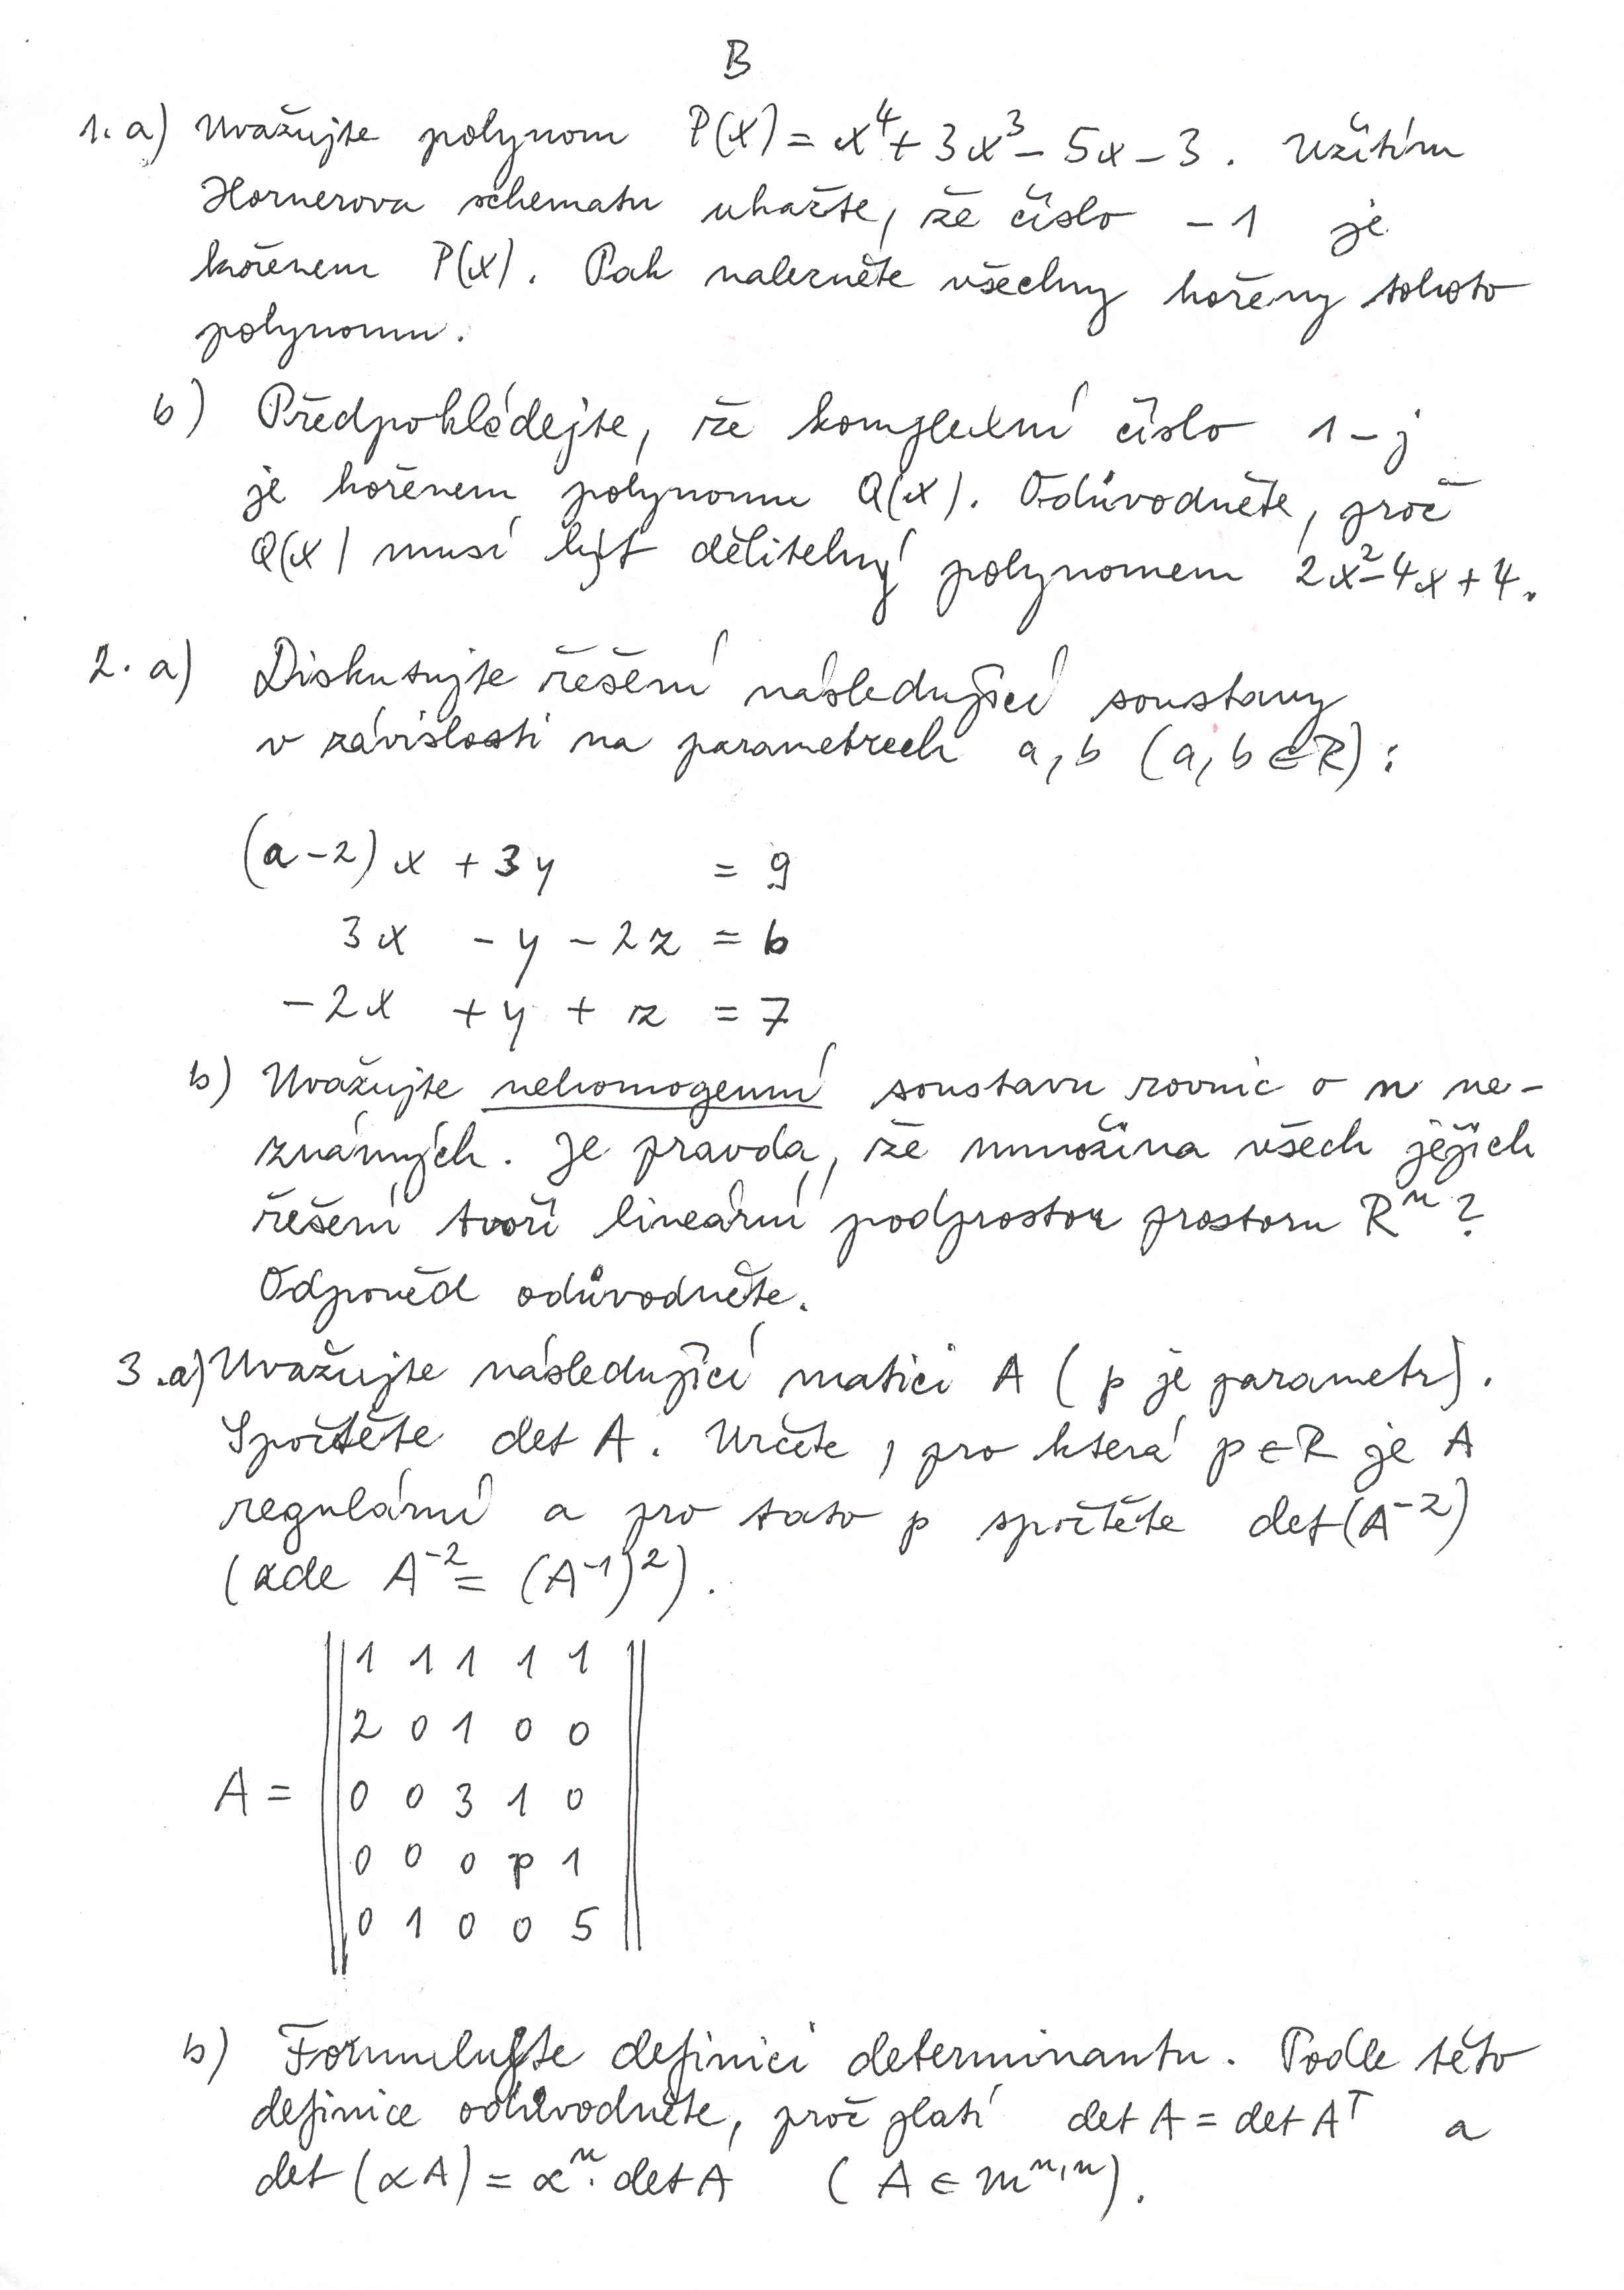 B
1. a) Uvažujte polynom P(x) = x⁴ + 3x³ - 5x - 3. Užitím
Hornerova schematu ukažte, že číslo -1 je
kořenem P(x). Pak nalezněte všechny kořeny tohoto
polynomu.
b) Předpokládejte, že komplexní číslo 1 - j
je kořenem polynomu Q(x). Odůvodněte, proč
Q(x) musí být dělitelný polynomem 2x² - 4x + 4.
2. a) Diskutujte řešení následující soustavy
v závislosti na parametrech a, b (a, b ∈ R):
(a - 2) x + 3y = 9
3x - y - 2z = b
-2x + y + z = 7
b) Uvažujte nehomogenní soustavu rovnic o n ne-
známých. Je pravda, že množina všech jejich
řešení tvoří lineární podprostor prostoru Rⁿ?
Odpověd odůvodněte.
3. a) Uvažujte následující matici A (p je parametr).
Spočtěte det A. Určete, pro která p ∈ R je A
regulární a pro tato p spočtěte det(A⁻²)
(zde A⁻² = (A⁻¹)²).
1 1 1 1 1
2 0 1 0 0
A = 0 0 3 1 0
0 0 0 p 1
0 1 0 0 5
b) Formulujte definici determinantu. Podle této
definice odůvodněte, proč platí det A = det Aᵀ a
det (αA) = αⁿ · det A (A ∈ mⁿ'ⁿ).